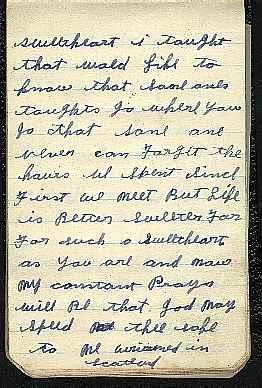 sweetheart i taught
that wold like to
know that some ones
taughts Go where you
Go that some one
never can Forgit the
hours we spent sinct
First we meet But Life
is Better sweeter Far
For such a sweetheart
as you are and now
my constant Prays
will Be that God may
speed thee safe
to me in
scotland